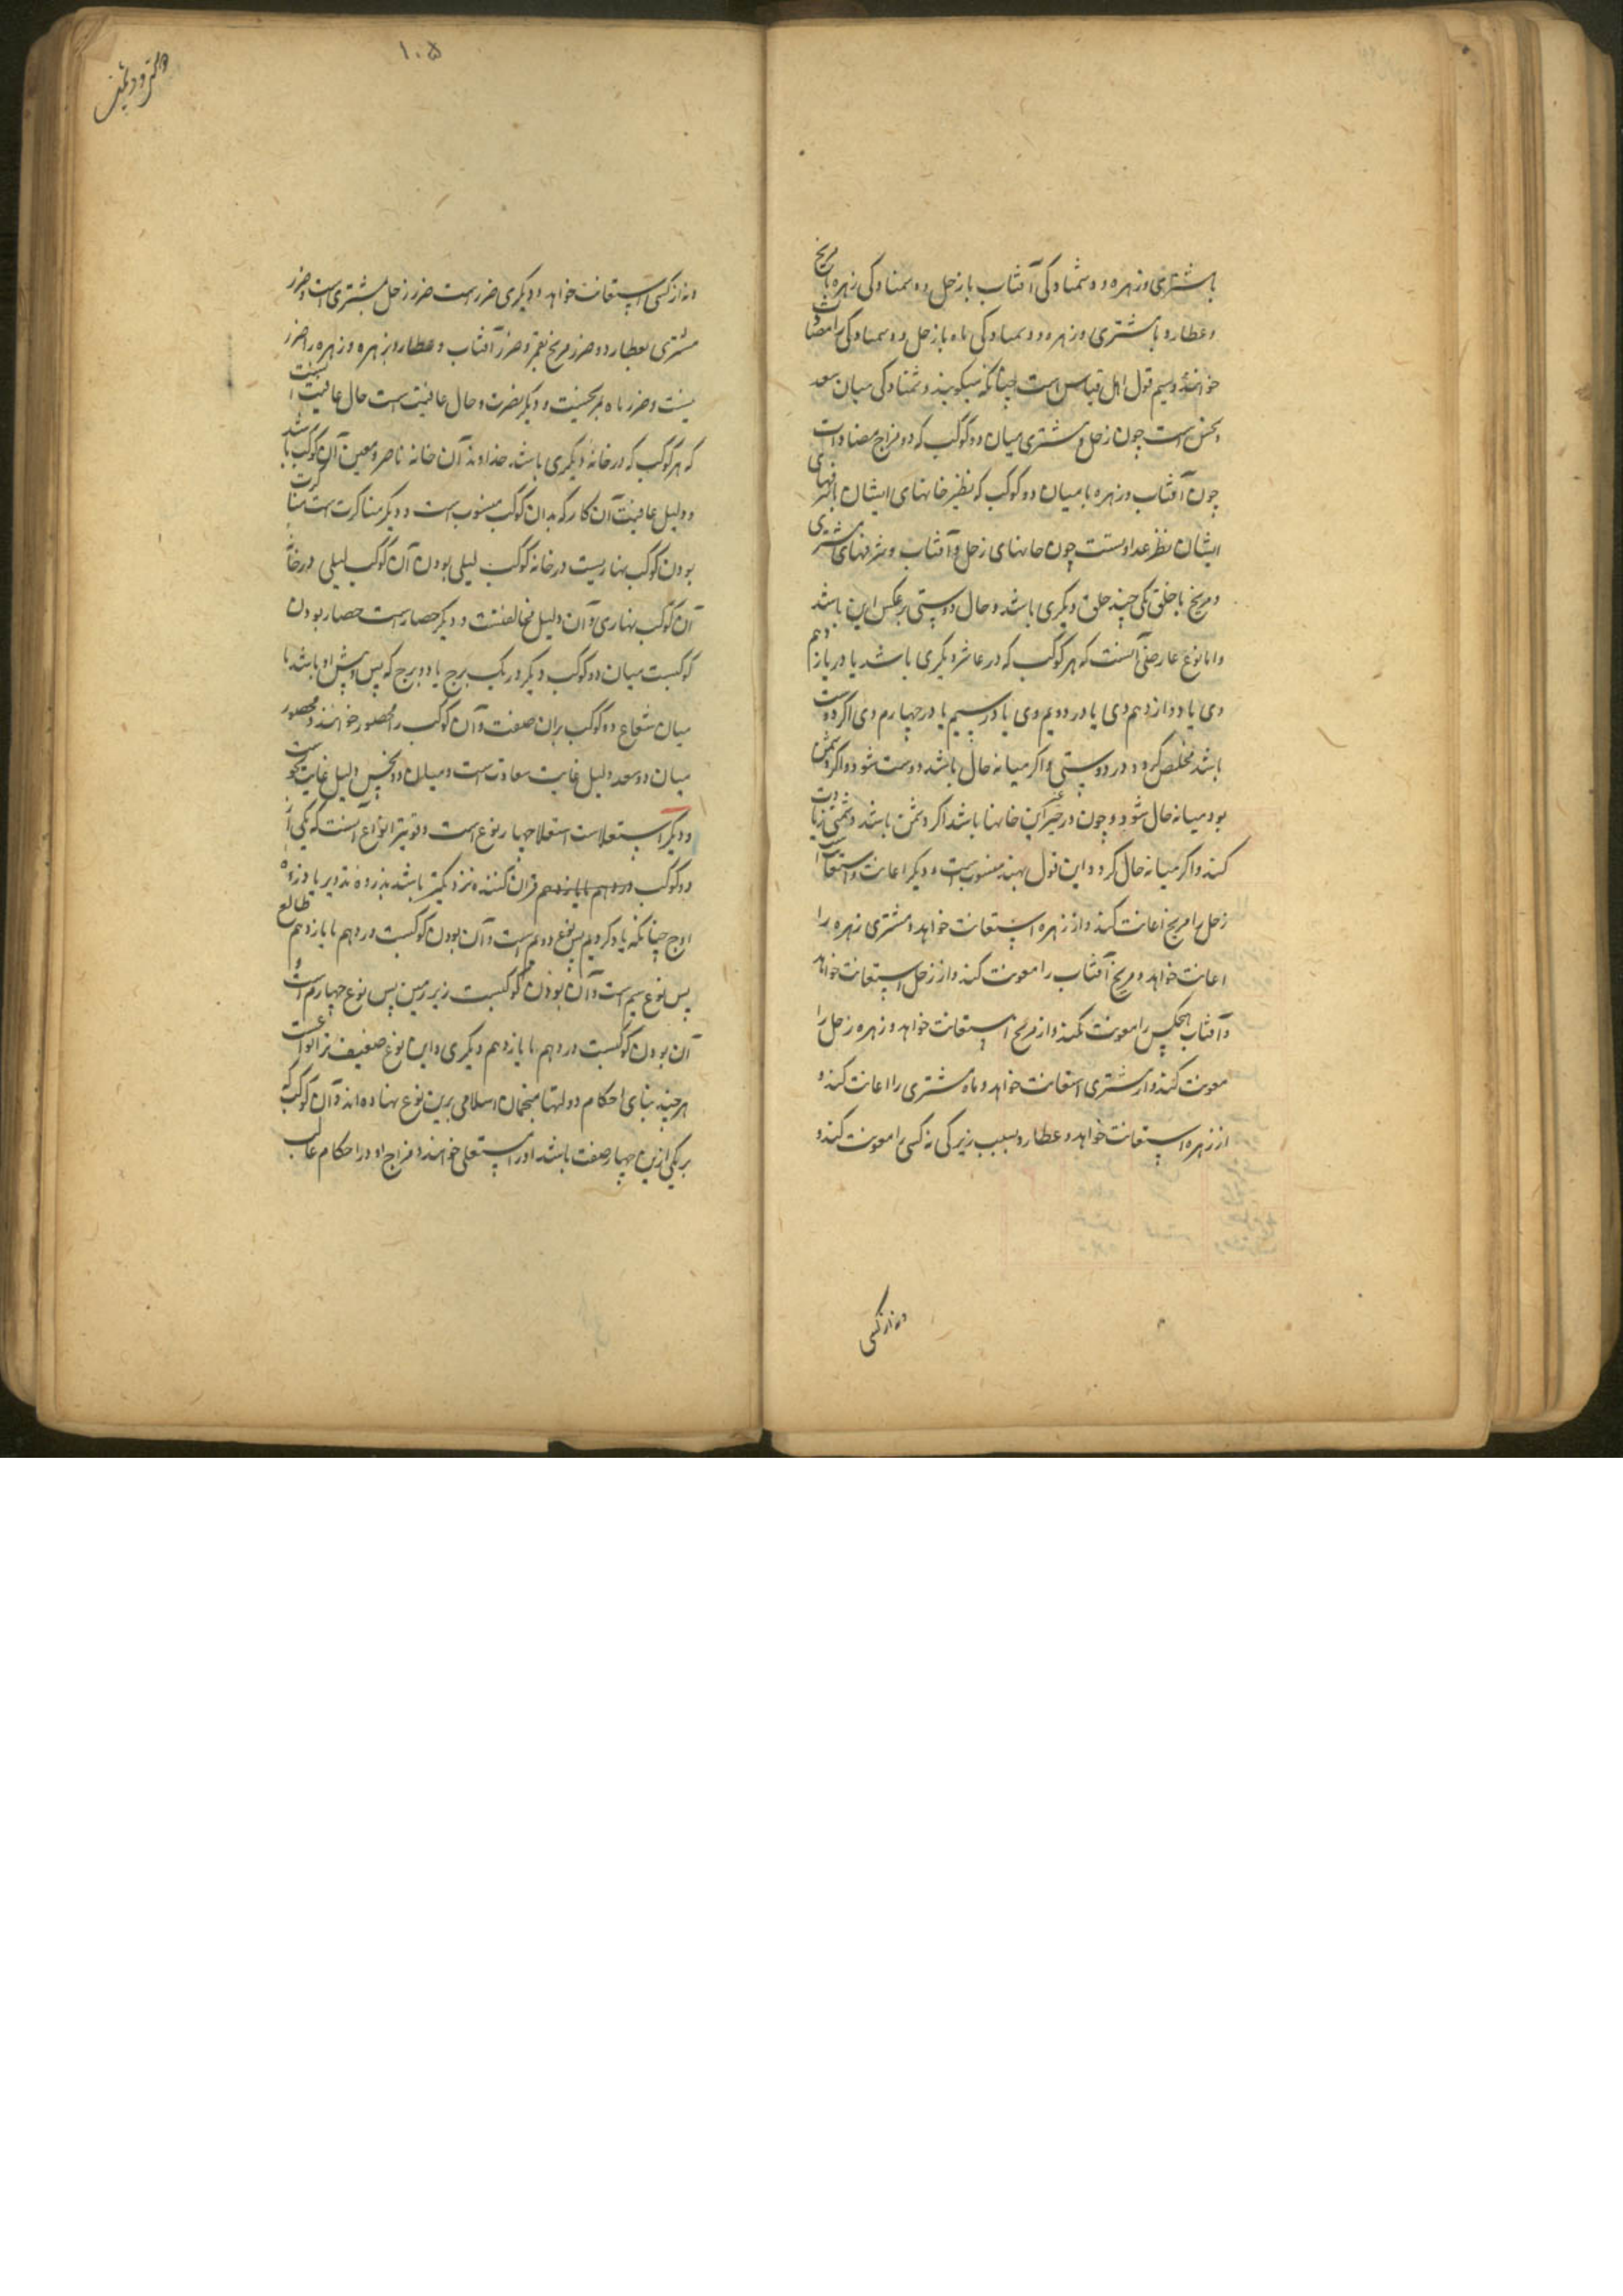 با مشتری و زهره و دشمنادگی آفتاب با زحل و دشمنادگی زهره با مریخ
و عطارد با مشتری و زهره و دشمنادگی ماه با زحل و دشمنادگی را مضادت
خوانند و سیم قول اهل قیاس است چنانکه میگویند دشمنادگی میان سعد
و نحس است چون زحل و مشتری میان دو کوکب که دو مزاج مضاد است
چون آفتاب و زهره یا میان دو کوکب که نظیر خانهای ایشان
ایشان نظر عداوتست چون خانهای زحل و آفتاب و شرفهای مشتری
و مریخ یا خلق یکی چند خلق دیگری باشد و حال دوستی برعکس این باشد
و اما نوع عارضی آنست که هر کوکب که در عاشر دیگری باشد یا در یازدهم
وی یا دوازدهم وی یا در دویم وی یا در سیم یا در چهارم وی اگر دوست
باشد مخلص گردد در دوستی و اگر میانه حال باشد دوست شود و اگر دشمن
بود میانه حال شود و چون در غیر این خانها باشد اگر دشمن باشد دشمنی زیادت
کند و اگر میانه حال گردد و این قول بهند منسوب است و دیگر اعانت و استعانت
زحل را مریخ اعانت کند و از زهره استعانت خواهد و مشتری زهره را
اعانت خواهد و مریخ آفتاب را معونت کند و از زحل استعانت خواهد
و آفتاب هیچکس را معونت نکند و از مریخ استعانت خواهد و زهره زحل را
معونت کند و از مشتری استعانت خواهد و ماه مشتری را اعانت کند و
از زهره استعانت خواهد و عطارد بسبب زیرکی نه کسی را معونت کند و
و نه از کسی
۱۰۵
و نه از کسی استعانت خواهد و دیگری ضرر است ضرر زحل بمشتری است و ضرر
مشتری بعطارد و ضرر مریخ بقمر و ضرر آفتاب و عطارد بزهره و زهره را ضرر
نیست و ضرر ماه بمریخست و دیگر نضرت و حال عافیت است حال عافیت آنست
که هر کوکب که در خانه دیگری باشد خداوند آن خانه ناصر و معین آن کوکب باشد
و دلیل عافیت آن کار که بدان کوکب منسوب است و دیگر مناکرت است مناکرت
بودن کوکب نهاریست در خانه کوکب لیلی بودن آن کوکب لیلی در خانه
آن کوکب نهاری و آن دلیل مخالفتست و دیگر حصارست حصار بودن
کوکبست میان دو کوکب دیگر در یک برج یا دو برج که پس و پیش او باشد یا
میان شعاع دو کوکب بران صفت و آن کوکب را محصور خوانند و محصور
میان دو سعد دلیل غایت سعادتست و میان دو نحس دلیل غایت نحوست
و دیگر استعلاست استعلا چهار نوع است و قویتر انواع آنست که یکی از
دو کوکب در دهم یا یازدهم قران کننده نزدیکتر باشد بذروه تدویر یا ذروه
اوج چنانکه یاد کردیم پس نوع دوم است و آن بودن کوکبست در دهم یا یازدهم طالع
پس نوع سیم است و آن بودن کوکبست زیر زمین پس نوع چهارم است و
آن بودن کوکبست در دهم یا یازدهم دیگری و این نوع ضعیف تر انواعست
هر چند بنای احکام دولتها منجمان اسلامی برین نوع نهاده اند و آن کوکب که
بر یکی ازین چهار صفت باشد او را مستعلی خوانند و مزاج او در احکام غالب